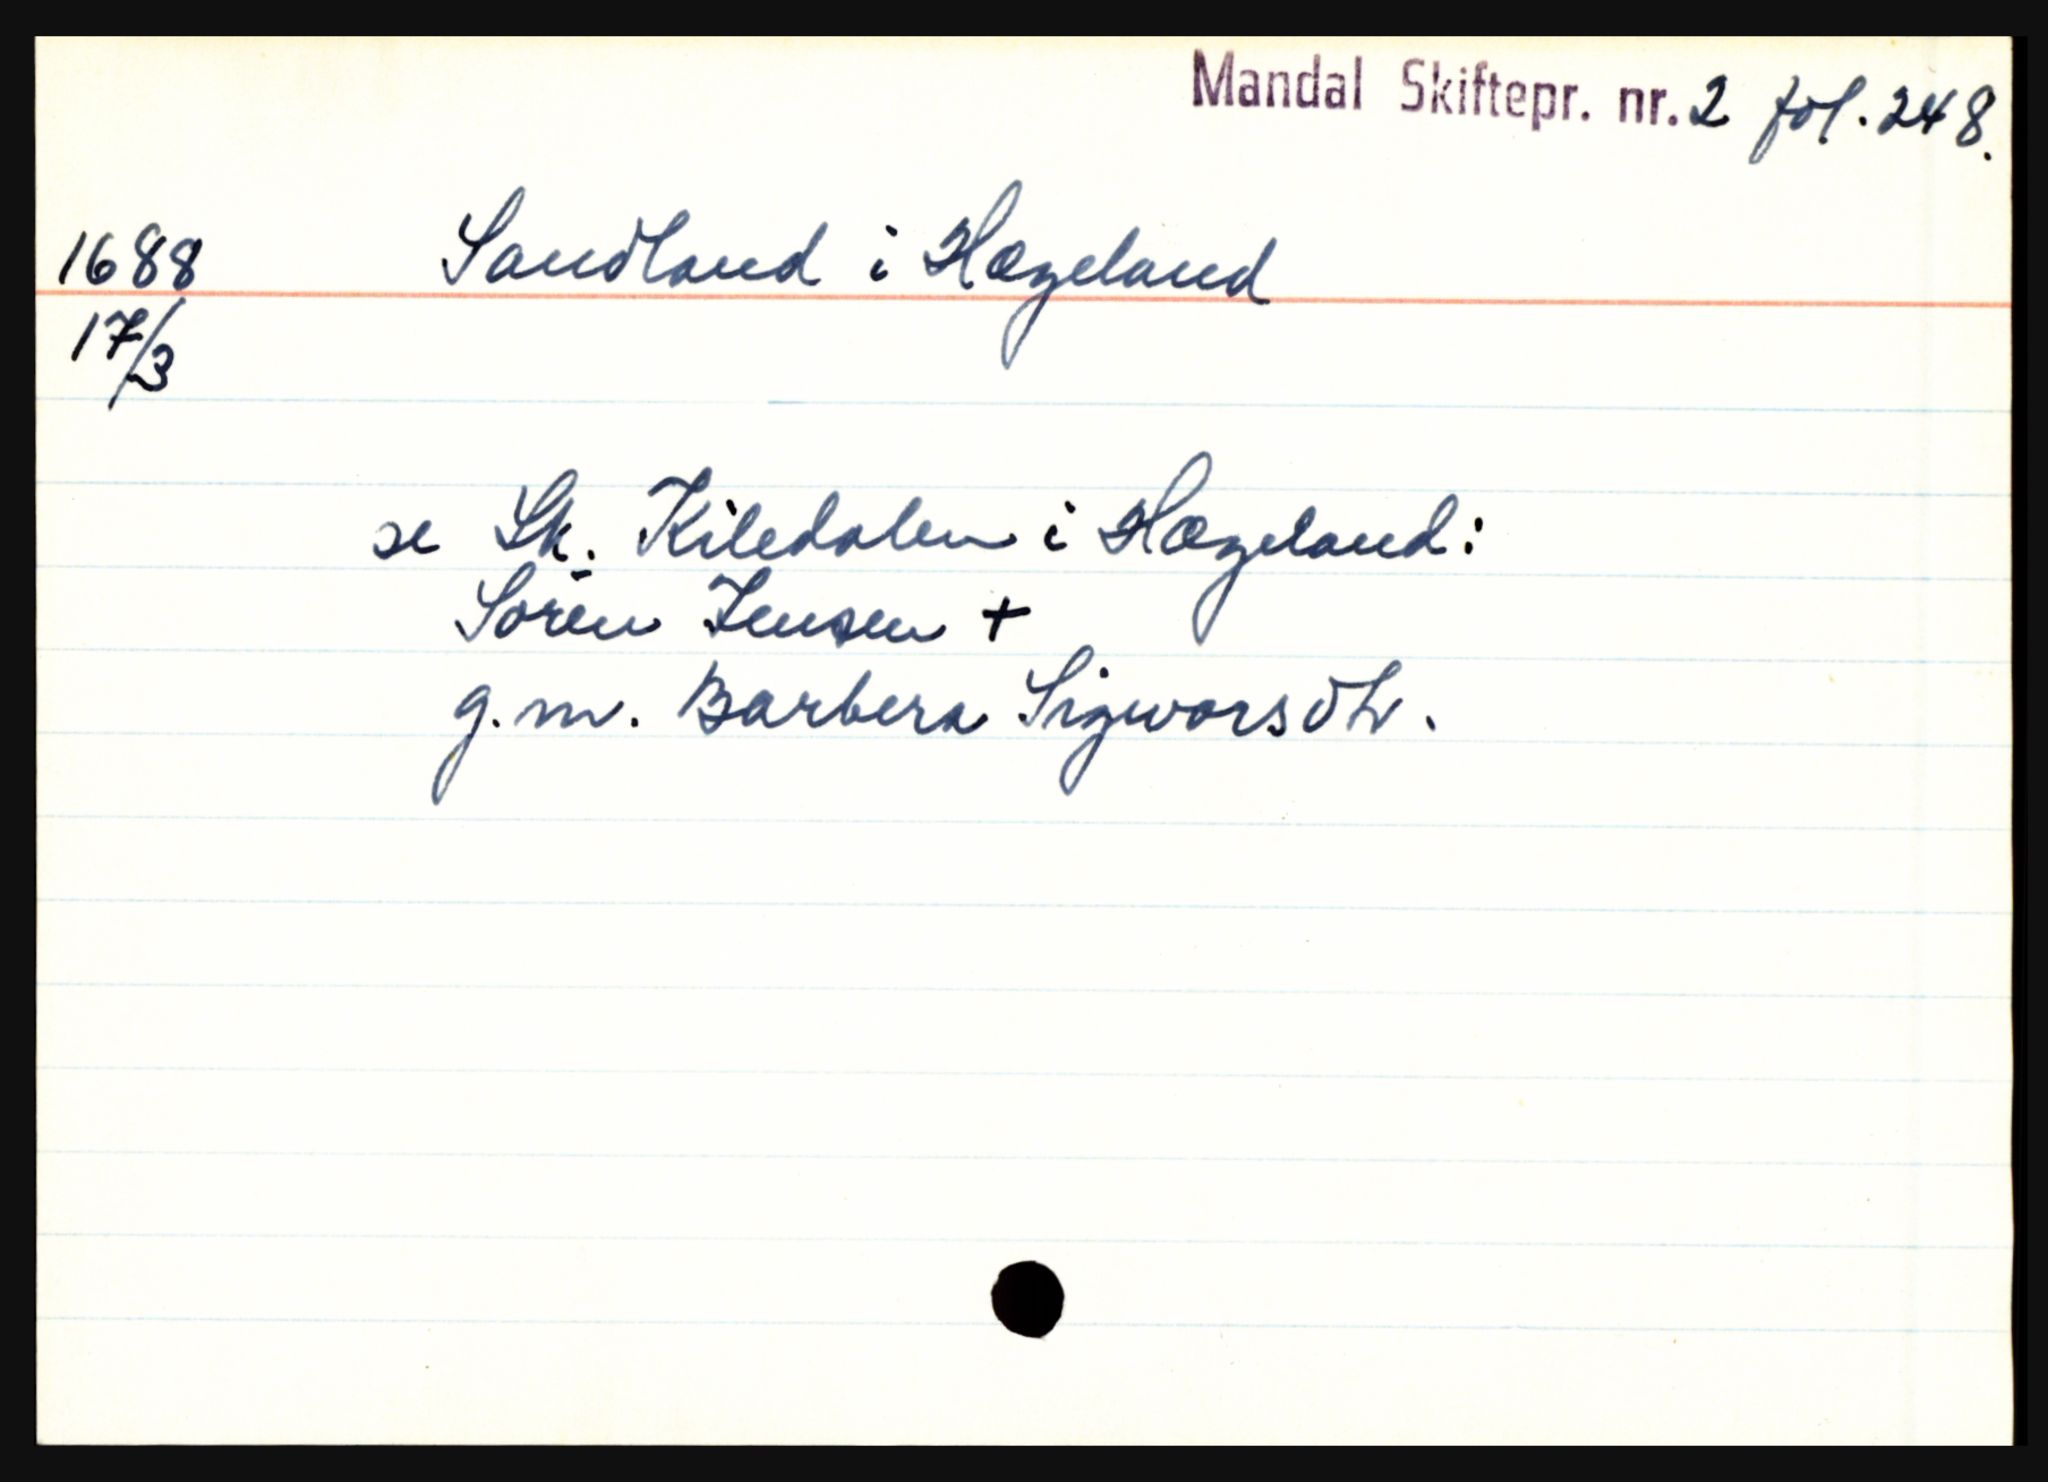 Mandal Skiftepr. nr. 2 fol. 248.
1688 Sandland i Hægeland
17/3
se Sk. Kiledalen i Hægeland:
Sören Jensen +
g.m. Barbera Sigvorsdtr.